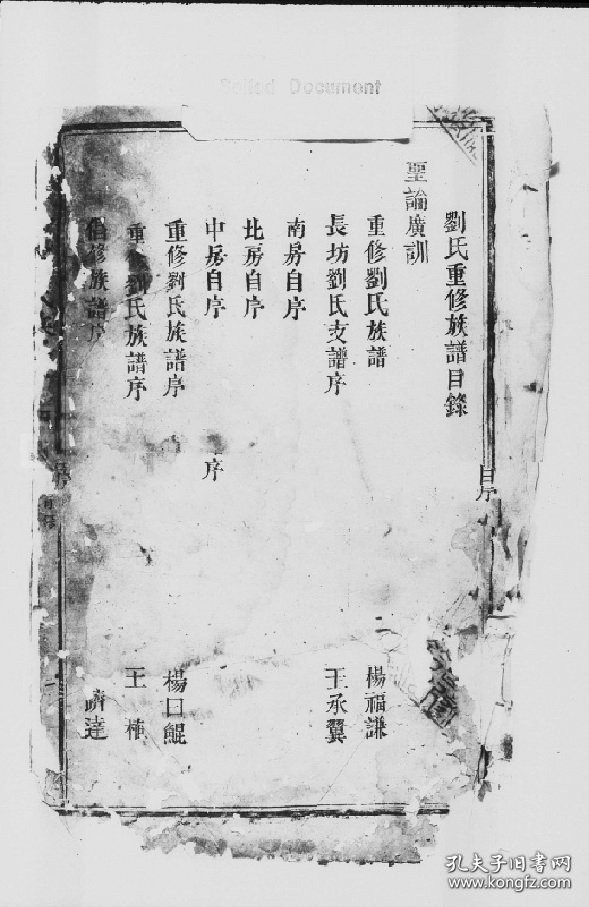 Soiled Document
劉氏重修族譜目錄
聖諭廣訓
重修劉氏族譜 楊福謙
長坊劉氏支譜序 王承翼
南房自序
北房自序
中房自序 序
重修劉氏族譜序 楊口鯤
重修劉氏族譜序 王
修族譜序 達
孔夫子旧书网
www.kongfz.com